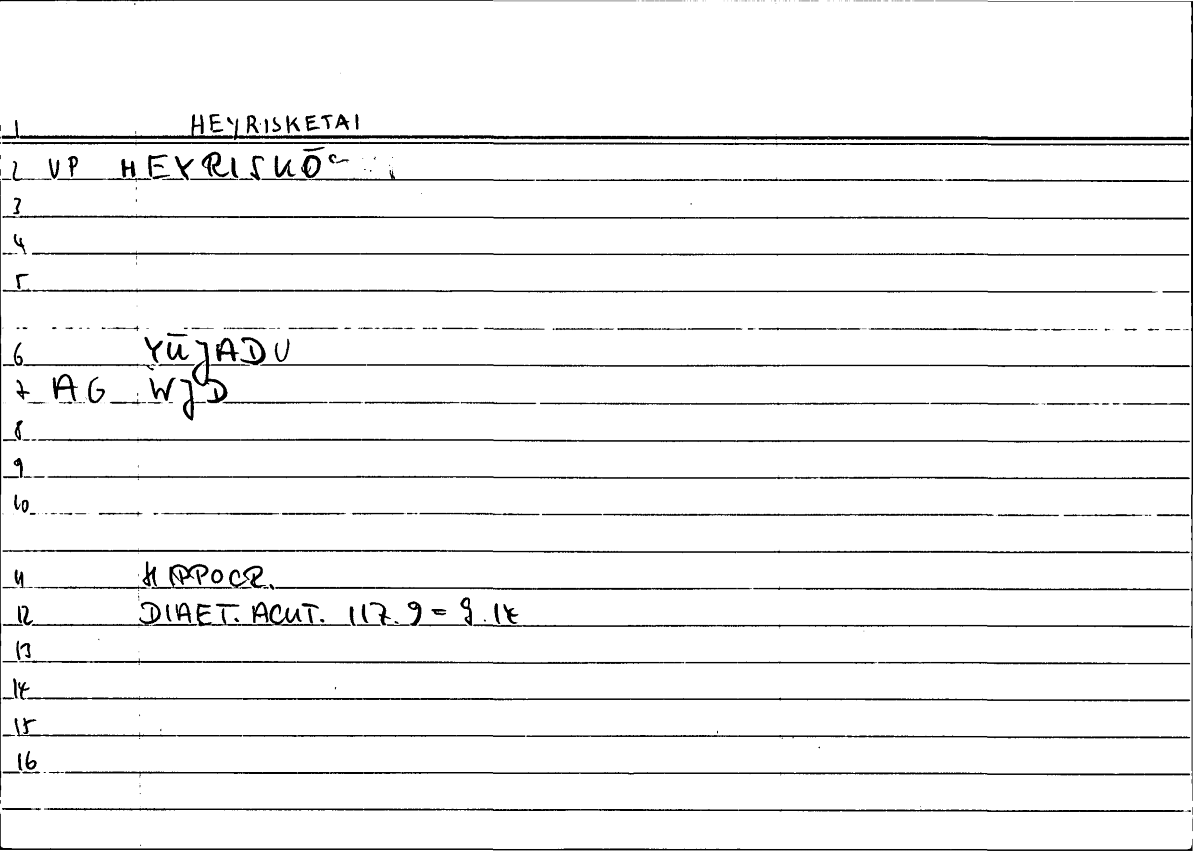 1 HEYRISKETAI
2 VP HEYRISKŌ
3
4
5
6 YŪJADU
7 AG WJD
8
9
10
11 HIPPOCR.
12 DIAET. ACUT. 117.9 = 9.14
13
14
15
16